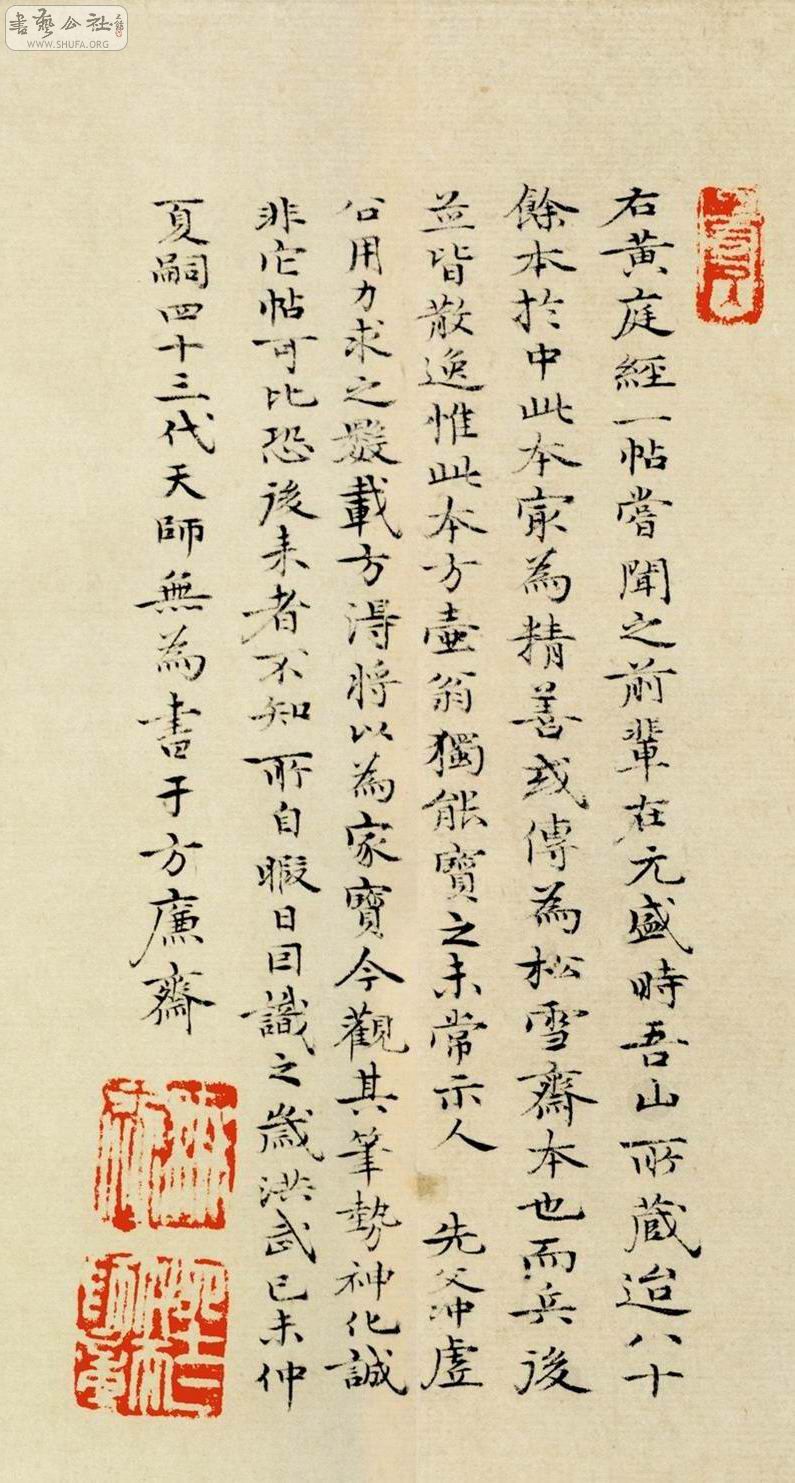 書藝公社
WWW.SHUFA.ORG
右黃庭經一帖嘗聞之前輩在元盛時吾山所蔵迨八十
餘本於中此本㝡為精善或傳為松雪齋本也而兵後
並皆散逸惟此本方壺翁獨能寶之未常示人 先父沖虛
公用力求之數載方得將以為家寶今觀其筆勢神化誠
非它帖可比恐後来者不知所自暇日因識之歲洪武己未仲
夏嗣四十三代天師無為書于方廉齋